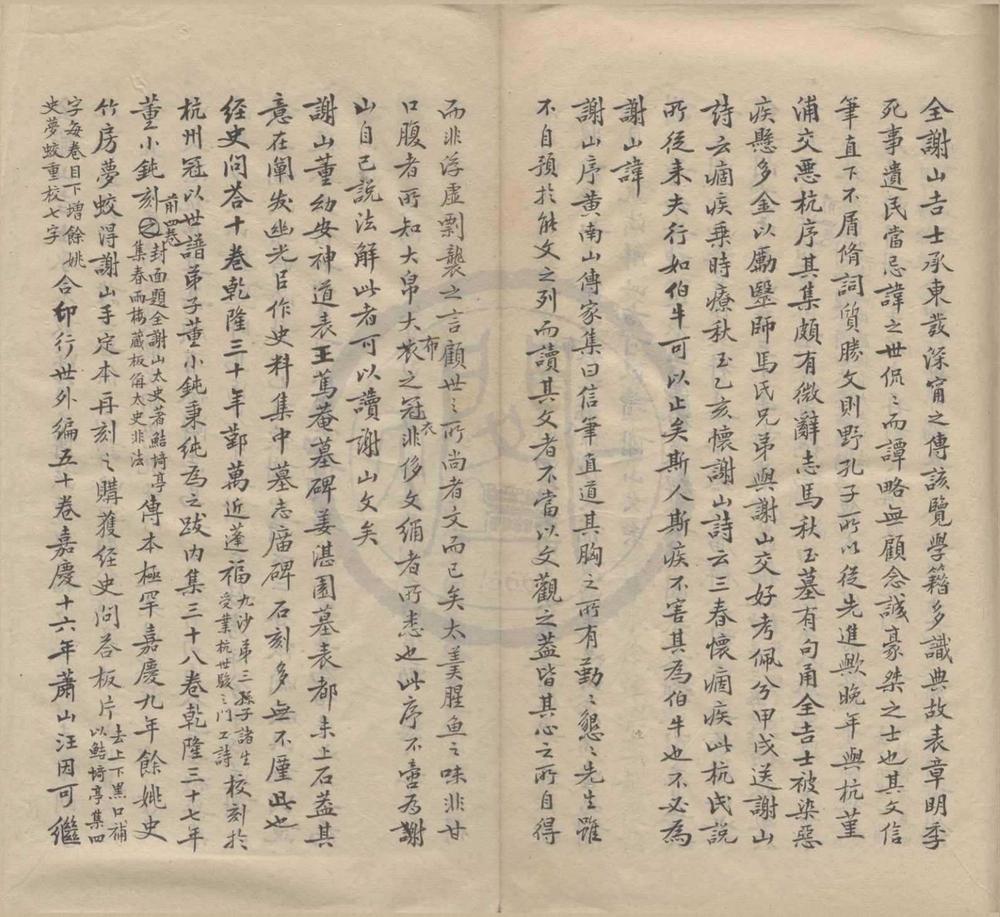 全謝山吉士承東發深甯之傳該覽學籍多識典故表章明季
死事遺民當忌諱之世侃〻而譚略無顧念誠豪桀之士也其文信
筆直下不屑脩詞質勝文則野孔子所以從先進歟晚年與杭堇
浦交惡杭序其集頗有微辭志馬秋玉墓有句甬全吉士被染惡
疾懸多金以勵毉師馬氏兄弟與謝山交好考佩兮甲戌送謝山
詩云痼疾乗時療秋玉乙亥懷謝山詩云三春懷痼疾此杭氏說
所從来夫行如伯牛可以止矣斯人斯疾不害其為伯牛也不必為
謝山諱
謝山序黄南山傳家集曰信筆直道其胸之所有勤〻懇〻先生雖
不自預於能文之列而讀其文者不當以文觀之葢皆其心之所自得
而非浮虛剽襲之言顧世〻所尚者文而已矣太羙腥魚之味非甘
口腹者所知大帛大衣之冠非侈文繡者所悉也此序不啻為謝
布 衣
山自己說法解此者可以讀謝山文矣
謝山董幼安神道表王篤菴墓碑姜湛園墓表都未上石葢其
意在闡发幽光㠯作史料集中墓志廣碑石刻多無不僅此也
經史問答十卷乾隆三十年鄞萬近蓬福 九沙弟三孫子諸生受業杭世駿之門工詩 校刻於
杭州冠以世譜弟子董小鈍秉純為之跋内集三十八卷乾隆三十七年
董小鈍刻之 前四卷 封面題全謝山太史著鮚埼亭集春雨樓藏板偁太史非法 傳本極罕嘉慶九年餘姚史
竹房夢蛟淂謝山手定本再刻之購獲经史问荅板片 去上下黑口補以鮚埼亭集四
字每卷目下增餘姚史夢蛟重校七字 合印行世外编五十卷嘉慶十六年蕭山汪因可繼